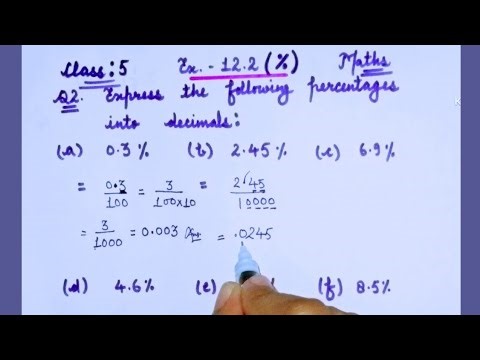 Class:5 Ex.-12.2 (%) Maths
Q2. Express the following percentages
into decimals:
(a) 0.3% (b) 2.45% (c) 6.9%
= 0.3/100 = 3/100×10 = 245/10000
= 3/1000 = 0.003 Ans = .0245
(d) 4.6% (e) % (f) 8.5%
K